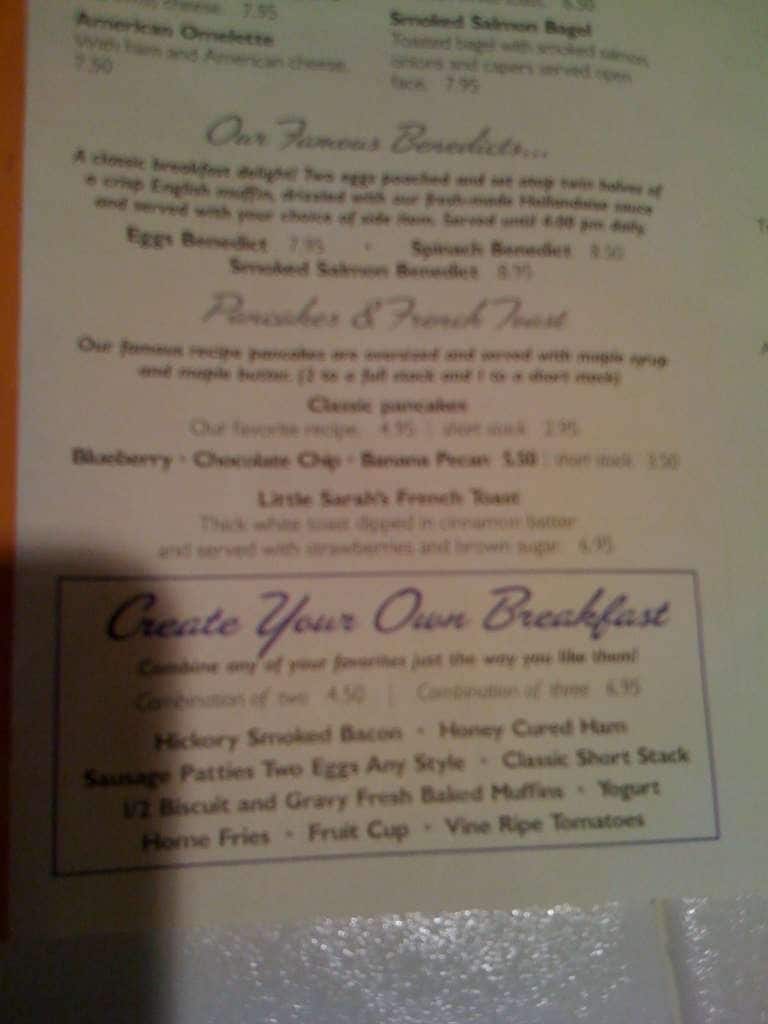 cheese. 7.95
American Omelette
With ham and American cheese.
7.50
Smoked Salmon Bagel
Toasted bagel with smoked salmon,
onions and capers served open
face. 7.95
Our Famous Benedicts...
A classic breakfast delight! Two eggs poached and set atop twin halves of
a crisp English muffin, drizzled with our fresh-made Hollandaise sauce
and served with your choice of side item. Served until 4:00 pm daily.
Eggs Benedict 7.95 • Spinach Benedict 8.50
Smoked Salmon Benedict 8.95
Pancakes & French Toast
Our famous recipe pancakes are oversized and served with maple syrup
and maple butter. (2 to a full stack and 1 to a short stack)
Classic pancakes
Our favorite recipe. 4.95 | short stack 2.95
Blueberry • Chocolate Chip • Banana Pecan 5.50 | short stack 3.50
Little Sarah's French Toast
Thick white toast dipped in cinnamon batter
and served with strawberries and brown sugar. 6.95
Create Your Own Breakfast
Combine any of your favorites just the way you like them!
Combination of two 4.50 | Combination of three 6.95
Hickory Smoked Bacon • Honey Cured Ham
Sausage Patties Two Eggs Any Style • Classic Short Stack
1/2 Biscuit and Gravy Fresh Baked Muffins • Yogurt
Home Fries • Fruit Cup • Vine Ripe Tomatoes